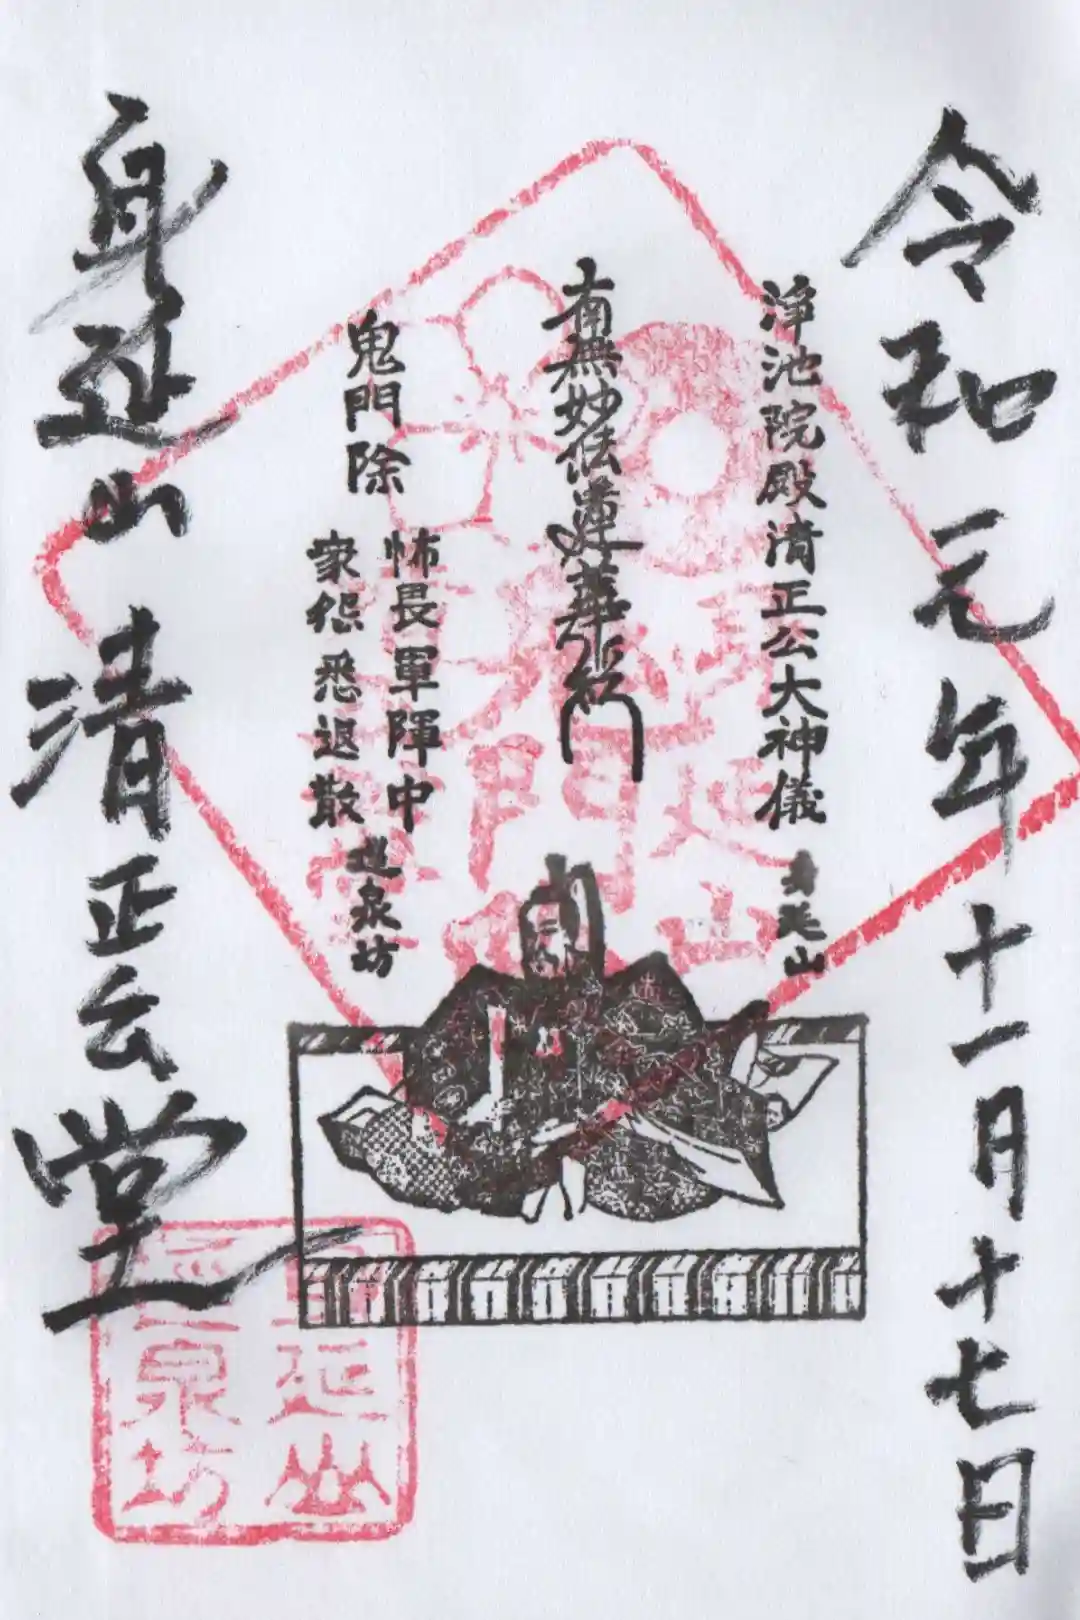 令和元年十一月十七日
浄池院殿清正公大神儀
身延山
南無妙法蓮華経
鬼門除
怖畏軍陣中
衆怨悉退散
泉坊
身延山 清正公堂
鬼門
延山
延山
泉坊